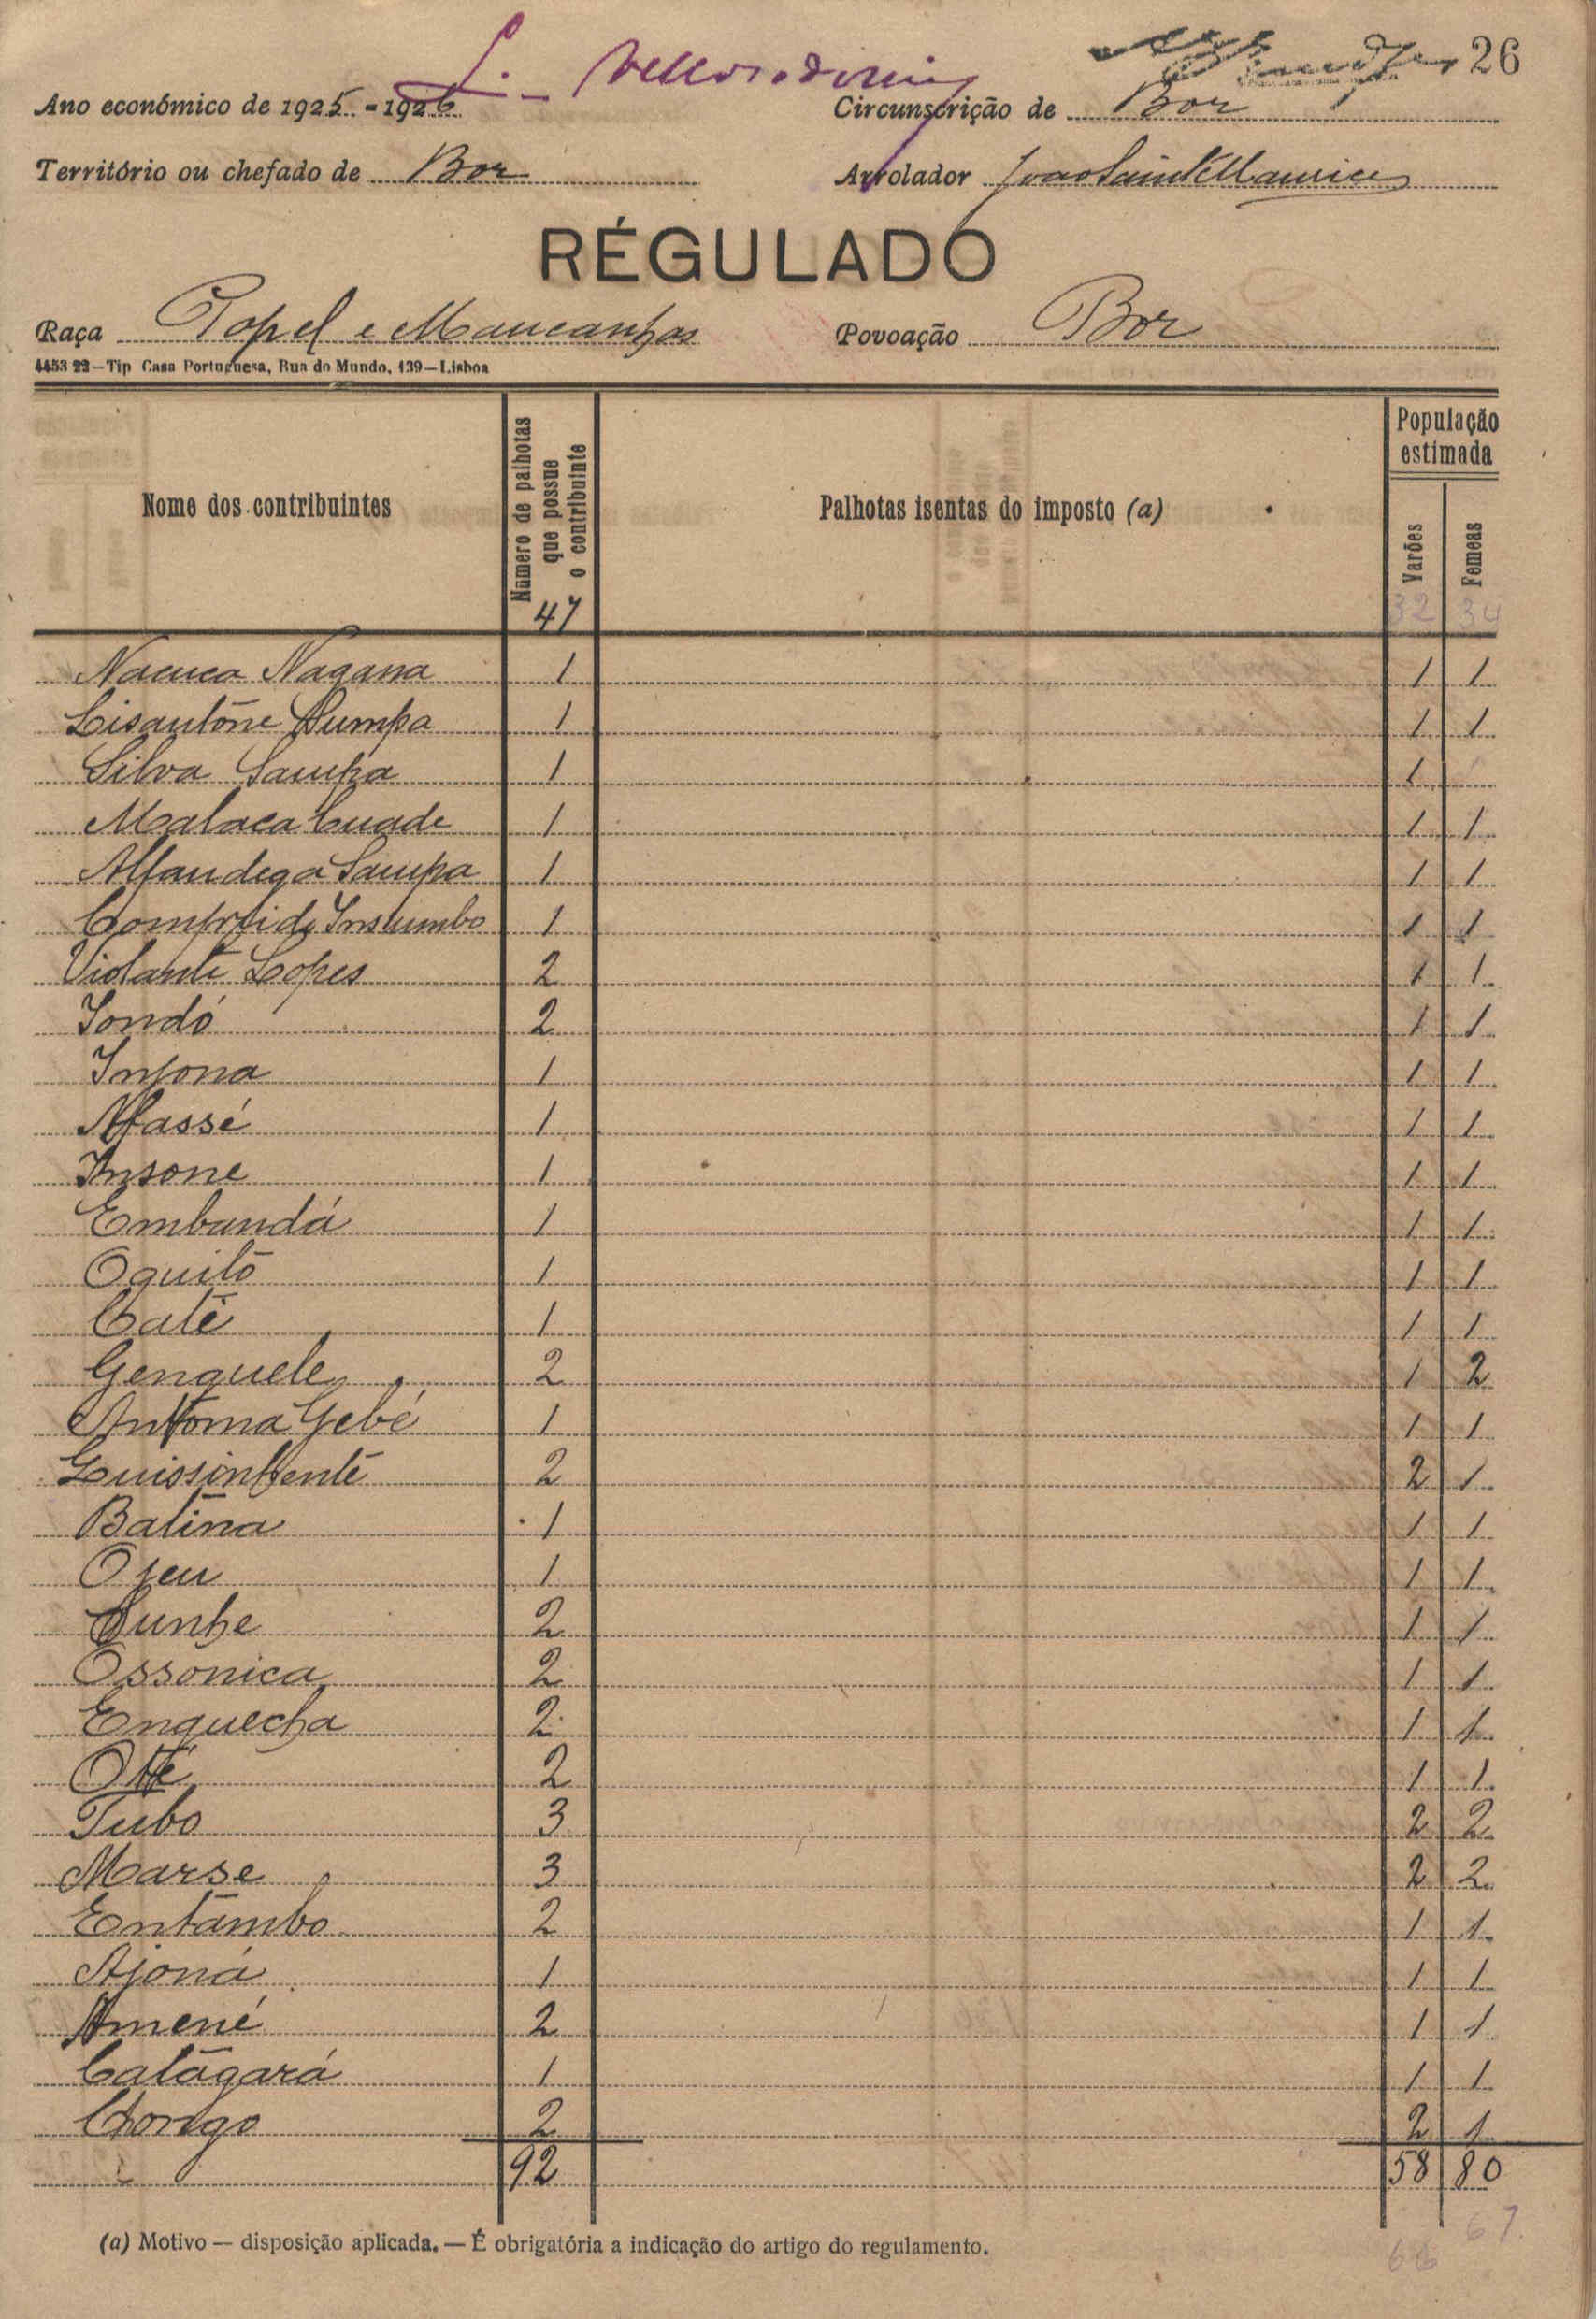 26
Ano económico de 1925-1926
Circunscrição de Bor
Território ou chefado de Bor
Arrolador João Saint Maurice
RÉGULADO
Raça Popel e Mancanhas
Povoação Bor
4453 22—Tip Casa Portuguesa, Rua do Mundo, 139—Lisboa
Nome dos contribuintes
Número de palhotas que possue o contribuinte
Palhotas isentas do imposto (a)
População estimada
Varões
Femeas
47 32 34
Nacuca Nagana 1 1 1
Lisantóne Pumpa 1 1 1
Silva Sampa 1 1
Malaca Cuade 1 1 1
Alfandega Sampa 1 1 1
Insumbo 1 1 1
Violante Lopes 2 1 1
Iondó 2 1 1
Infona 1 1 1
Massé 1 1 1
Insone 1 1 1
Embundá 1 1 1
Oquitó 1 1 1
Caté 1 1 1
Genquele 2 1 2
Antoma Gebé 1 1 1
2 2 1
Batina 1 1 1
Ojeu 1 1 1
Cunhe 2 1 1
Ossonica 2 1 1
Enquecha 2 1 1
Otté 2 1 1
Tubo 3 2 2
Marse 3 2 2
Entambo 2 1 1
Ajoná 1 1 1
Amené 2 1 1
Catágará 1 1 1
Chongo 2 2 1
92 58 80
67
66
(a) Motivo — disposição aplicada. — É obrigatória a indicação do artigo do regulamento.